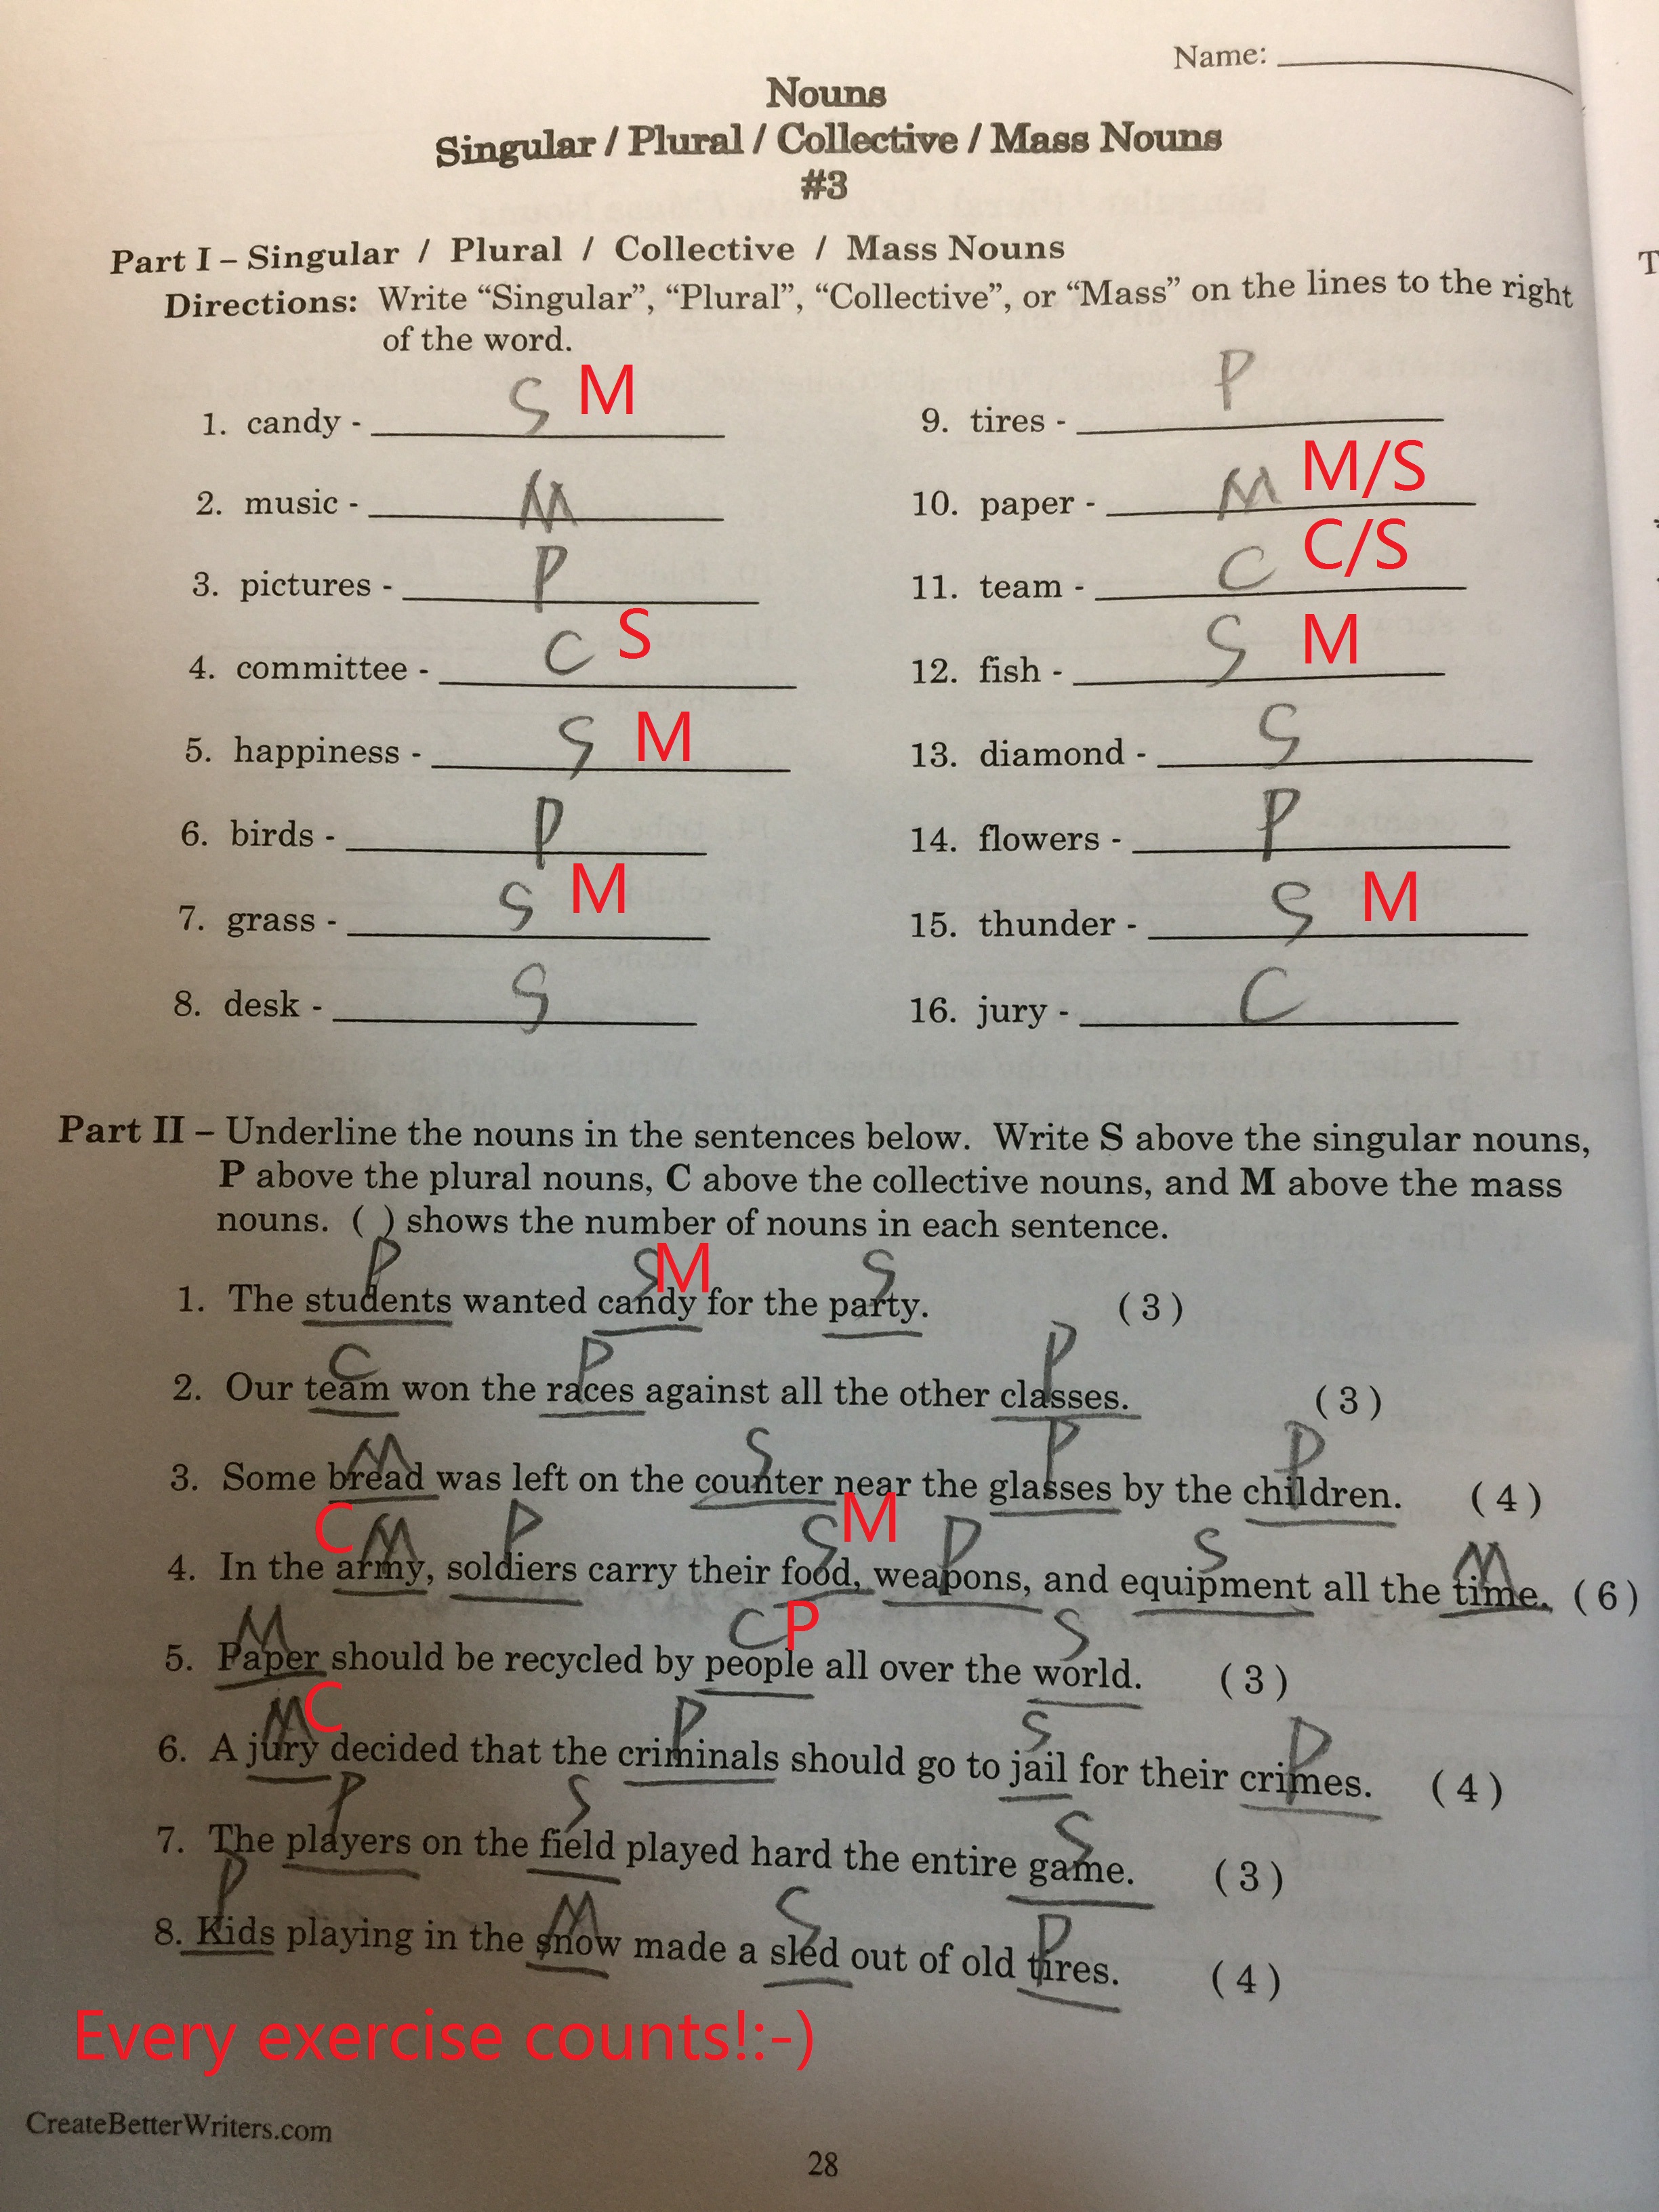 Name:
Nouns
Singular / Plural / Collective / Mass Nouns
#3
Part I – Singular / Plural / Collective / Mass Nouns
Directions: Write “Singular”, “Plural”, “Collective”, or “Mass” on the lines to the right
of the word.
1. candy - S M
2. music - M
3. pictures - P
4. committee - C S
5. happiness - S M
6. birds - P
7. grass - S M
8. desk - S
9. tires - P
10. paper - M M/S
11. team - C C/S
12. fish - S M
13. diamond - S
14. flowers - P
15. thunder - S M
16. jury - C
Part II – Underline the nouns in the sentences below. Write S above the singular nouns,
P above the plural nouns, C above the collective nouns, and M above the mass
nouns. ( ) shows the number of nouns in each sentence.
P S M S
1. The students wanted candy for the party. (3)
C P P
2. Our team won the races against all the other classes. (3)
M S P P
3. Some bread was left on the counter near the glasses by the children. (4)
C M P S M P S M
4. In the army, soldiers carry their food, weapons, and equipment all the time. (6)
M C P S
5. Paper should be recycled by people all over the world. (3)
M C P S P
6. A jury decided that the criminals should go to jail for their crimes. (4)
P S S
7. The players on the field played hard the entire game. (3)
P M S P
8. Kids playing in the snow made a sled out of old tires. (4)
Every exercise counts!:-)
CreateBetterWriters.com
28
T